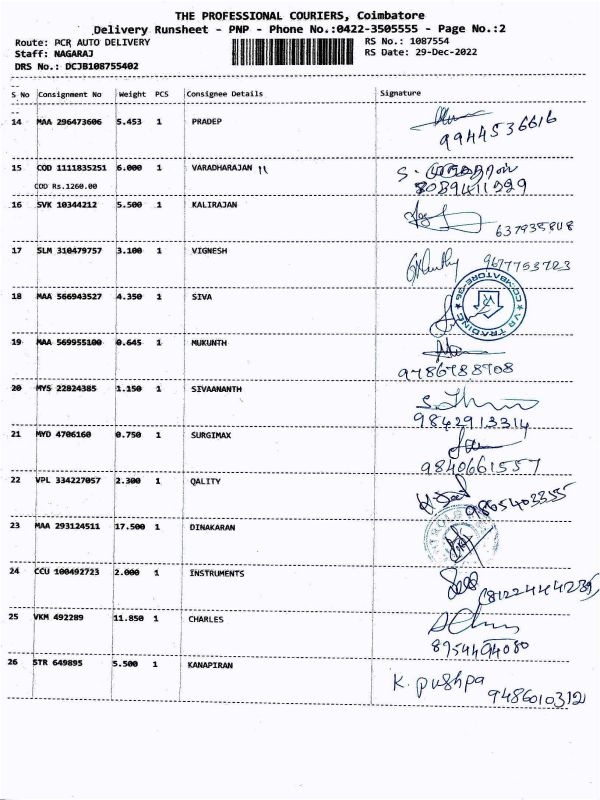 THE PROFESSIONAL COURIERS, Coimbatore
Delivery Runsheet - PNP - Phone No.:0422-3505555 - Page No.:2
Route: PCR AUTO DELIVERY RS No.: 1087554
Staff: NAGARAJ RS Date: 29-Dec-2022
DRS No.: DCJB108755402
S No Consignment No Weight PCS Consignee Details Signature
14 MAA 296473606 5.453 1 PRADEP
9944536616
15 COD 1111835251 6.000 1 VARADHARAJAN 11 S.
COD Rs.1260.00 8089411929
16 SVK 10344212 5.500 1 KALIRAJAN
637935848
17 SLM 310479757 3.100 1 VIGNESH 9677753723
18 MAA 566943527 4.350 1 SIVA
VR TRADING COIMBATORE-36
19 MAA 569955100 0.645 1 MUKUNTH
9786788708
20 MYS 22824385 1.150 1 SIVAANANTH
9842913314
21 MYD 4706160 0.750 1 SURGIMAX
9840661557
22 VPL 334227057 2.300 1 QALITY 9865403355
23 MAA 293124511 17.500 1 DINAKARAN
24 CCU 100492723 2.000 1 INSTRUMENTS
8122444239
25 VKM 492289 11.850 1 CHARLES
8754494080
26 STR 649895 5.500 1 KANAPIRAN
K. pushpa
9486010312